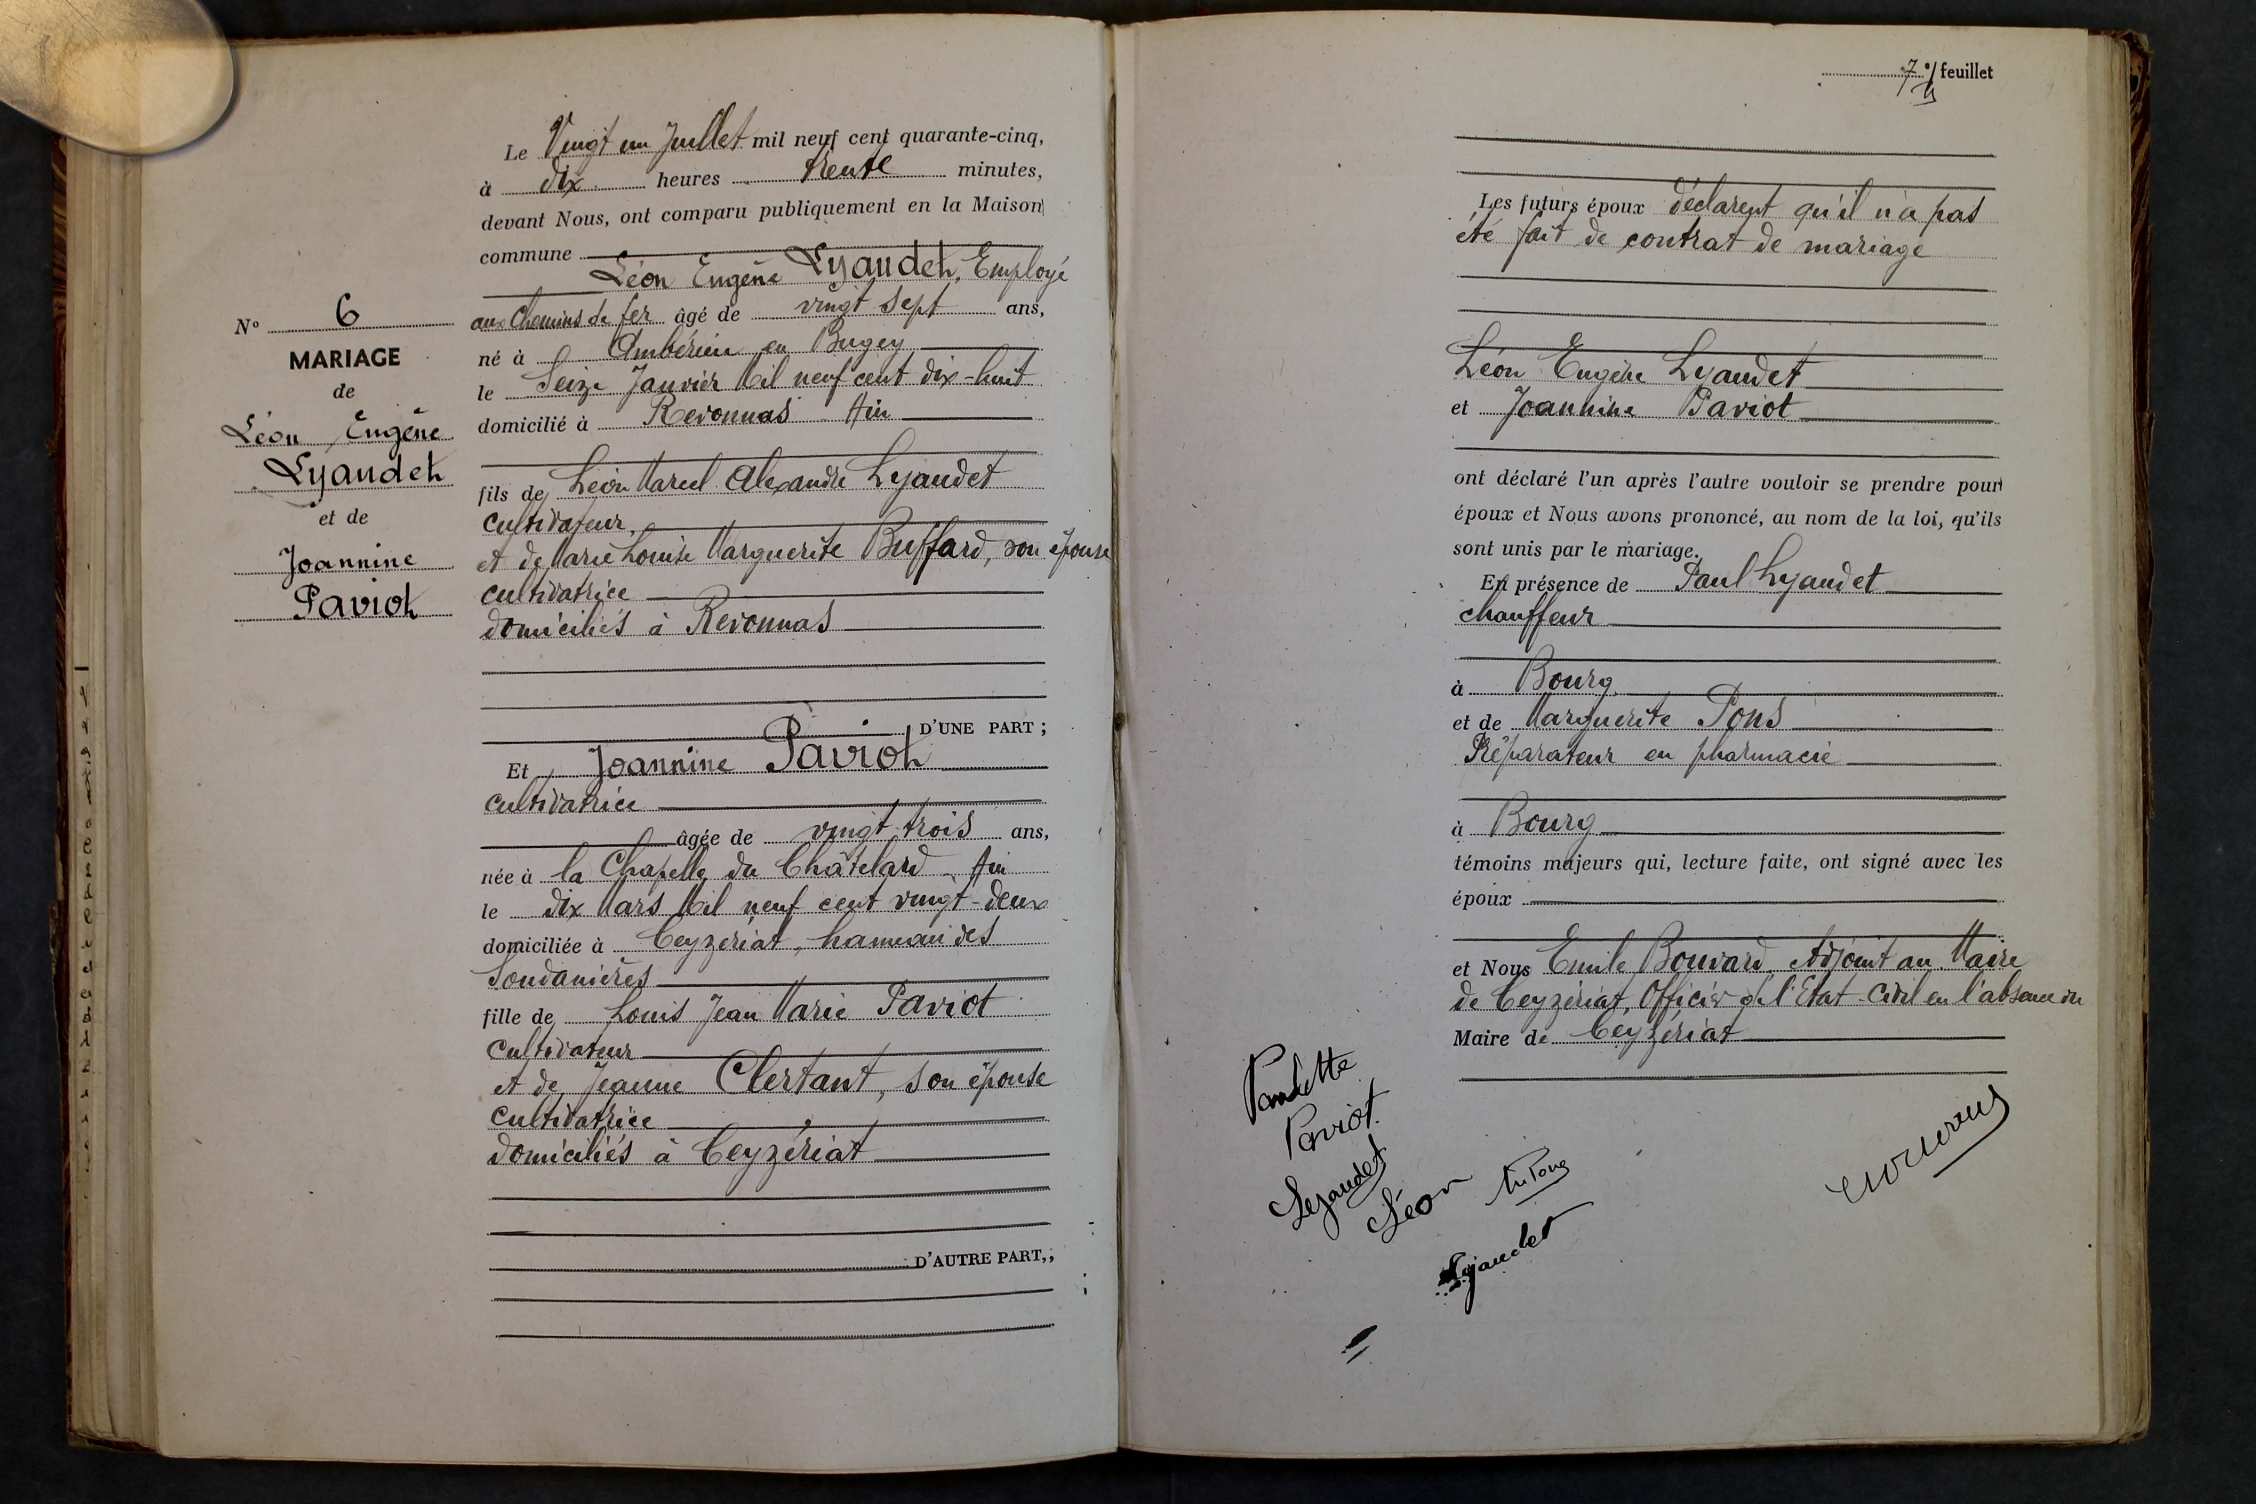 Le Vingt un Juillet mil neuf cent quarante-cinq,
à dix heures trente minutes,
devant Nous, ont comparu publiquement en la Maison
commune
Léon Eugène Lyaudet, Employé
aux Chemins de fer âgé de vingt sept ans,
né à Ambérieu en Bugey
le Seize Janvier Mil neuf cent dix-huit
domicilié à Revonnas Ain
fils de Léon Marcel Alexandre Lyaudet
cultivateur,
et de Marie Louise Marguerite Buffard, son épouse
cultivatrice
domiciliés à Revonnas
D'UNE PART ;
Et Joannine Paviot
cultivatrice
âgée de vingt trois ans,
née à la Chapelle du Châtelard Ain
le dix Mars Mil neuf cent vingt-deux
domiciliée à Ceyzériat, hameau des
Soudanières
fille de Louis Jean Marie Paviot
cultivateur
et de Jeanne Clertant, son épouse
cultivatrice
domiciliés à Ceyzériat
D'AUTRE PART,;
N° 6
MARIAGE
de
Léon Eugène
Lyaudet
et de
Joannine
Paviot
7 feuillet
Les futurs époux déclarent qu'il n'a pas
été fait de contrat de mariage
Léon Eugène Lyaudet
et Joannine Paviot
ont déclaré l'un après l'autre vouloir se prendre pour
époux et Nous avons prononcé, au nom de la loi, qu'ils
sont unis par le mariage.
En présence de Paul Lyaudet
chauffeur
à Bourg
et de Marguerite Pons
Préparateur en pharmacie
à Bourg
témoins majeurs qui, lecture faite, ont signé avec les
époux
et Nous Emile Bouvard Adjoint au Maire
de Ceyzériat, Officier de l'Etat-Civil en l'absence du
Maire de Ceyzériat
Paviot
Lyaudet
Léon
Lyaudet